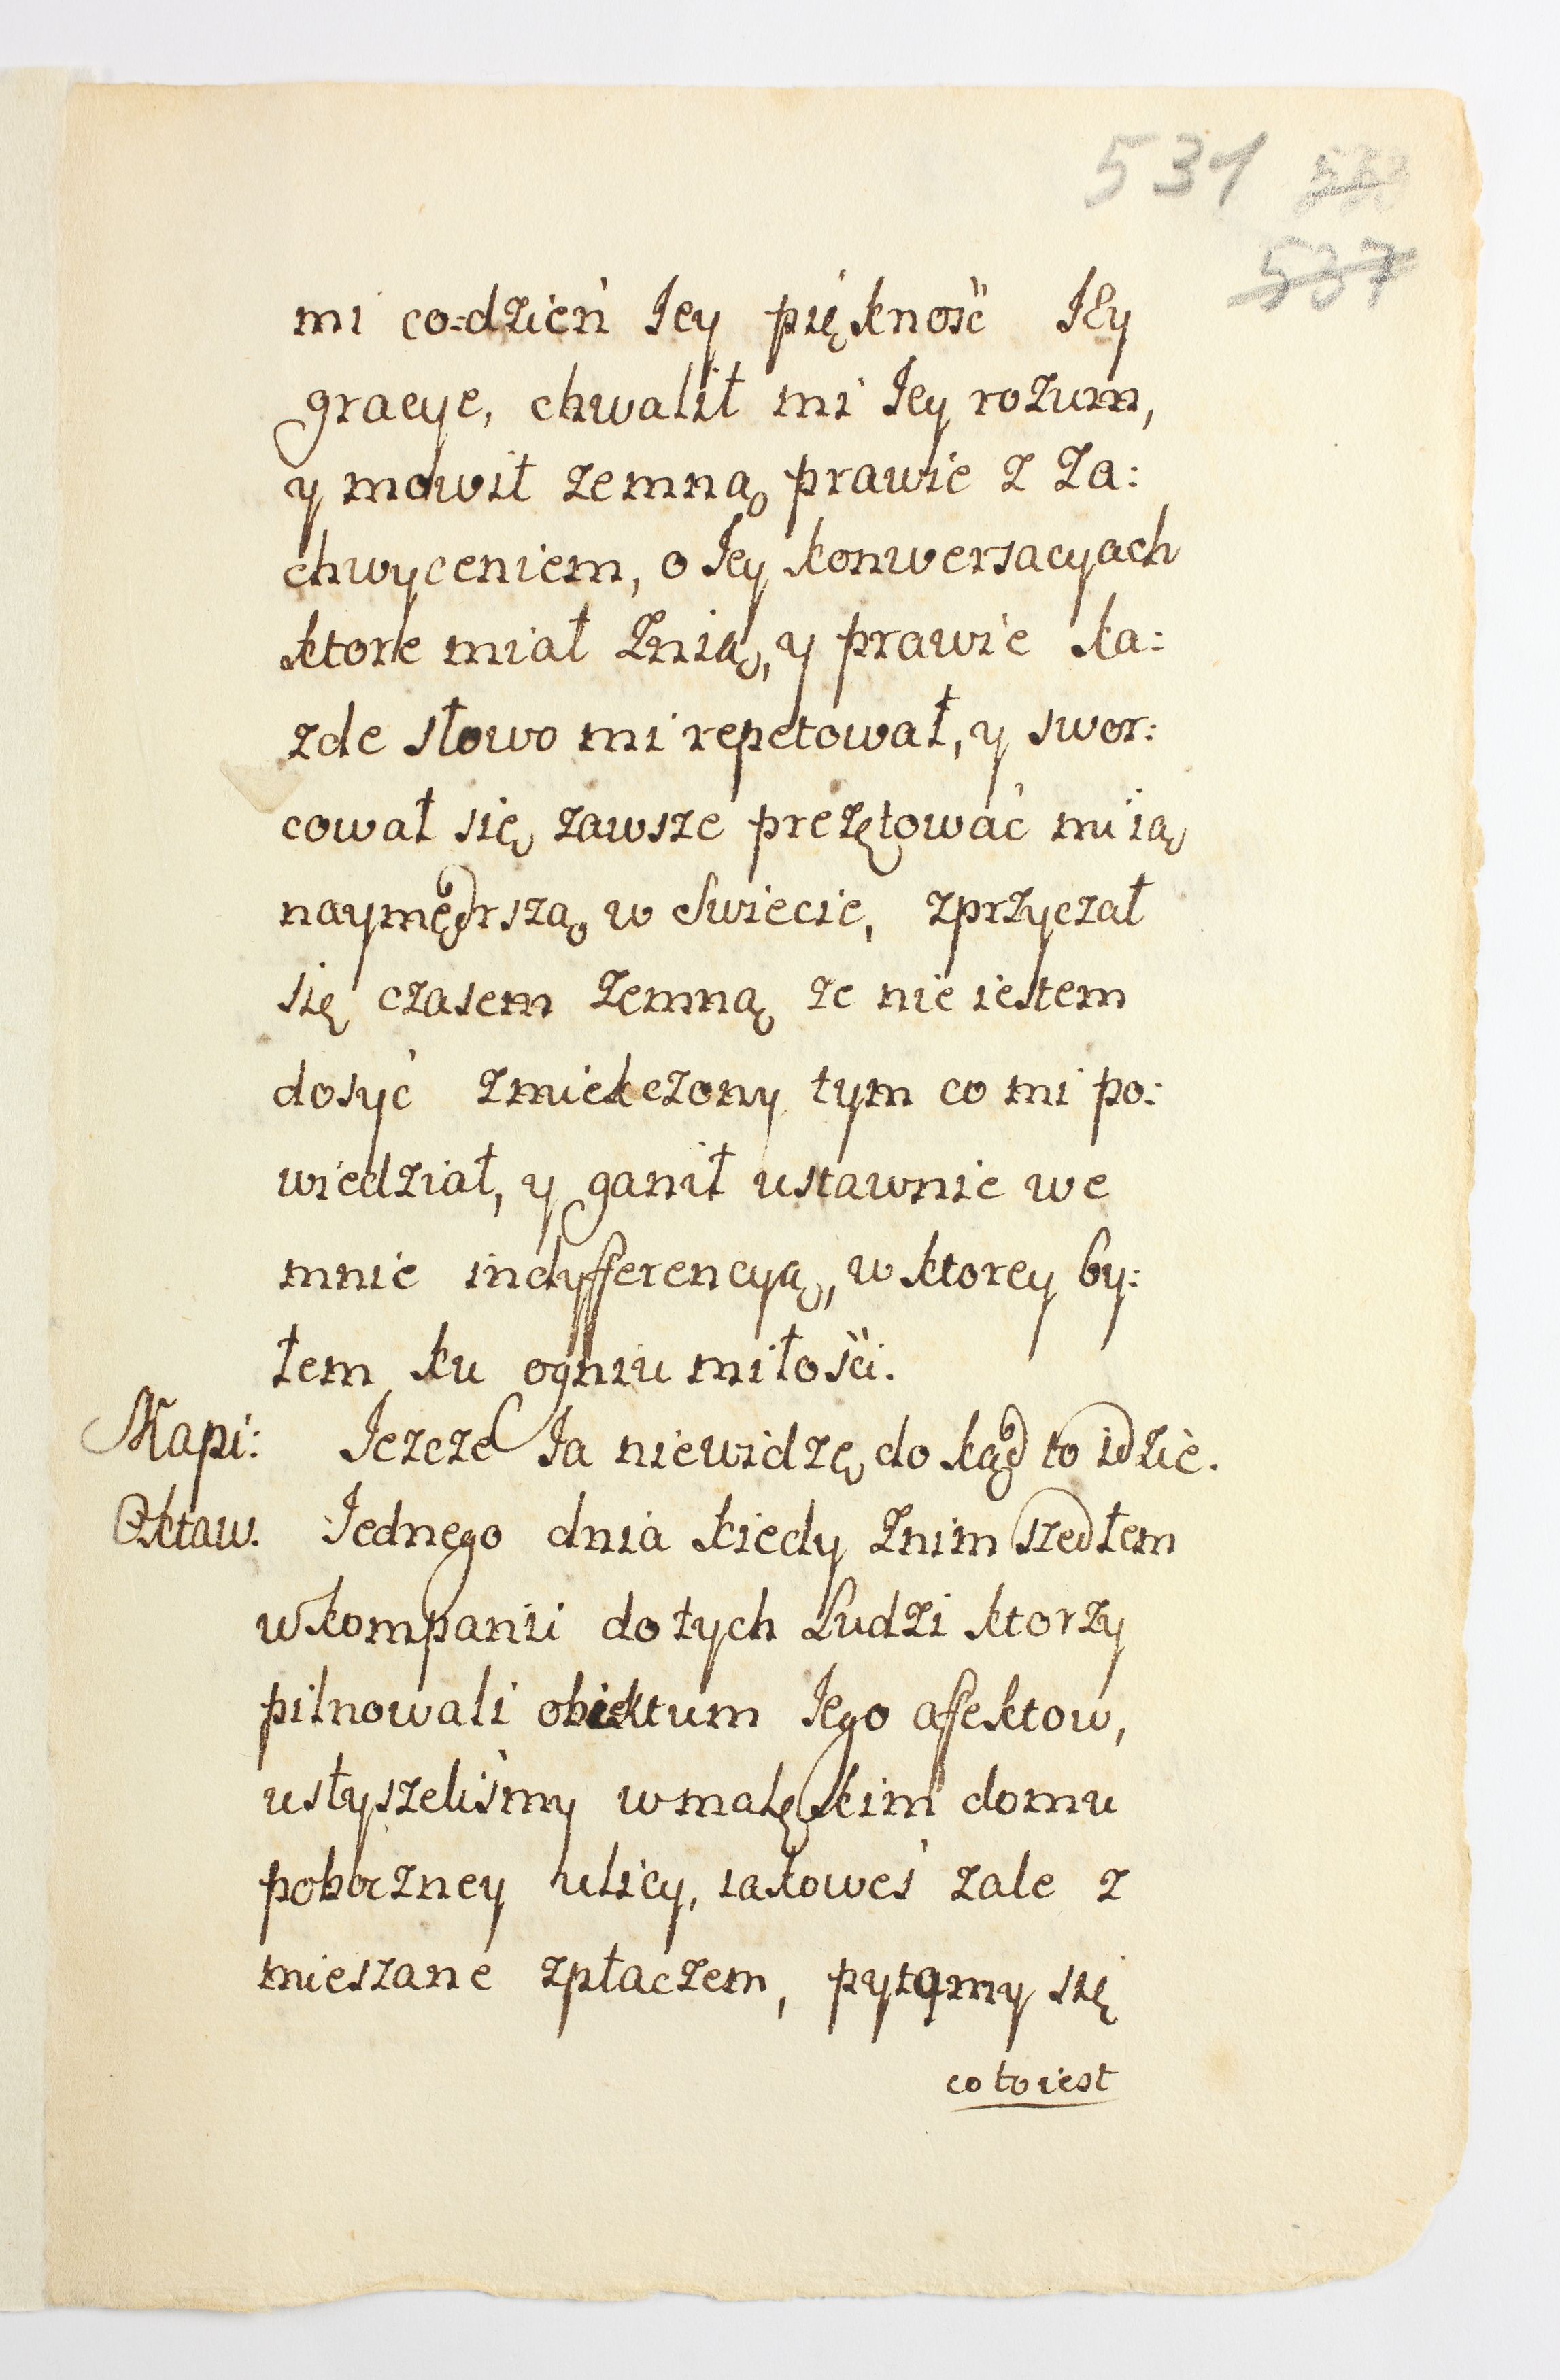 531 533
537
mi co=dzień Iey piękność Iey
gracye, chwalił mi Iey rozum,
y mowił zemną prawie z za:
chwyceniem, o Iey konwersacyach
ktore miał znią, y prawie ka:
zde słowo mi repetował, y swor:
cował się zawsze prezętować mi ią
naymędrszą w swiecie, zprzyczał
się czasem zemną ze nie iestem
dosyć zmiekczony tym co mi po:
wiedział, y ganił ustawnie we
mnie indyfferencyą, w ktorey by:
łem ku ogniu miłości.
Kapi: Ieszcze Ia niewidzę do kąd to idzie.
Oktaw. Iednego dnia kiedy znim szedłem
w kompanii do tych Ludzi ktorzy
pilnowali obiektum Iego affektow,
usłyszeliśmy w małęskim domu
poboczney ulicy, iakoweś zale z
mieszane zpłaczem, pytamy się
co to iest